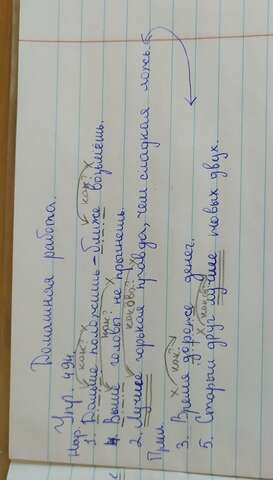 Домашняя работа.
Упр. 494.
Нар.
как? х как? х
1. Дальше положишь – ближе возьмёшь.
как? х
4. Выше головы не прыгнешь.
какова? х
2. Лучше горькая правда, чем сладкая ложь.
Прил.
х как?
3. Время дороже денег.
х каков?
5. Старый друг лучше новых двух.